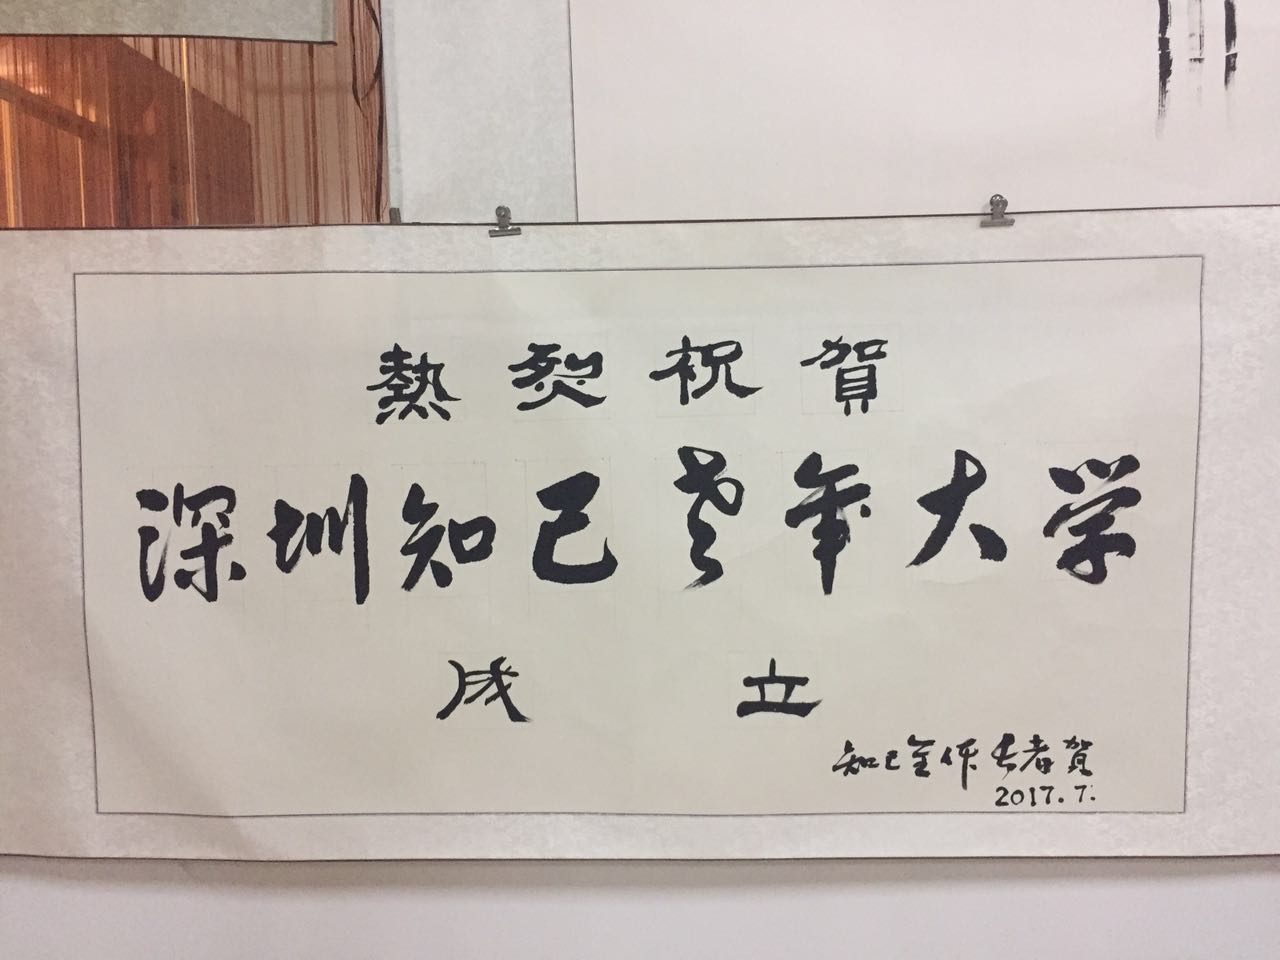 熱烈祝賀
深圳知己老年大学
成立
知己全体长者賀
2017.7.